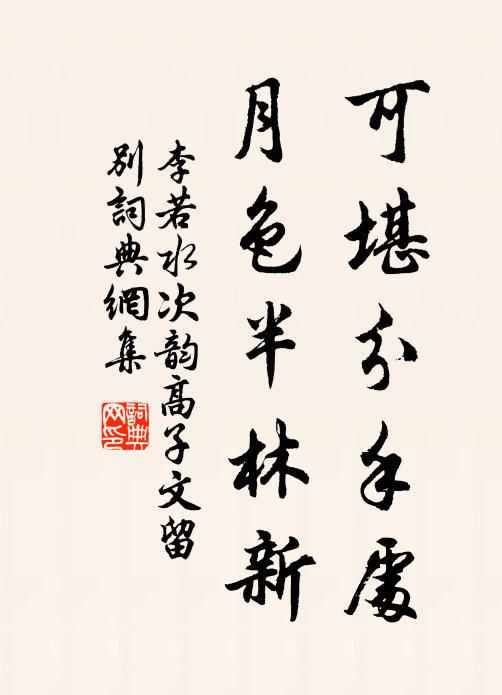 可堪分手處
月色半林新
李若水次韵高子文留
別詞典網集
詞典
网印